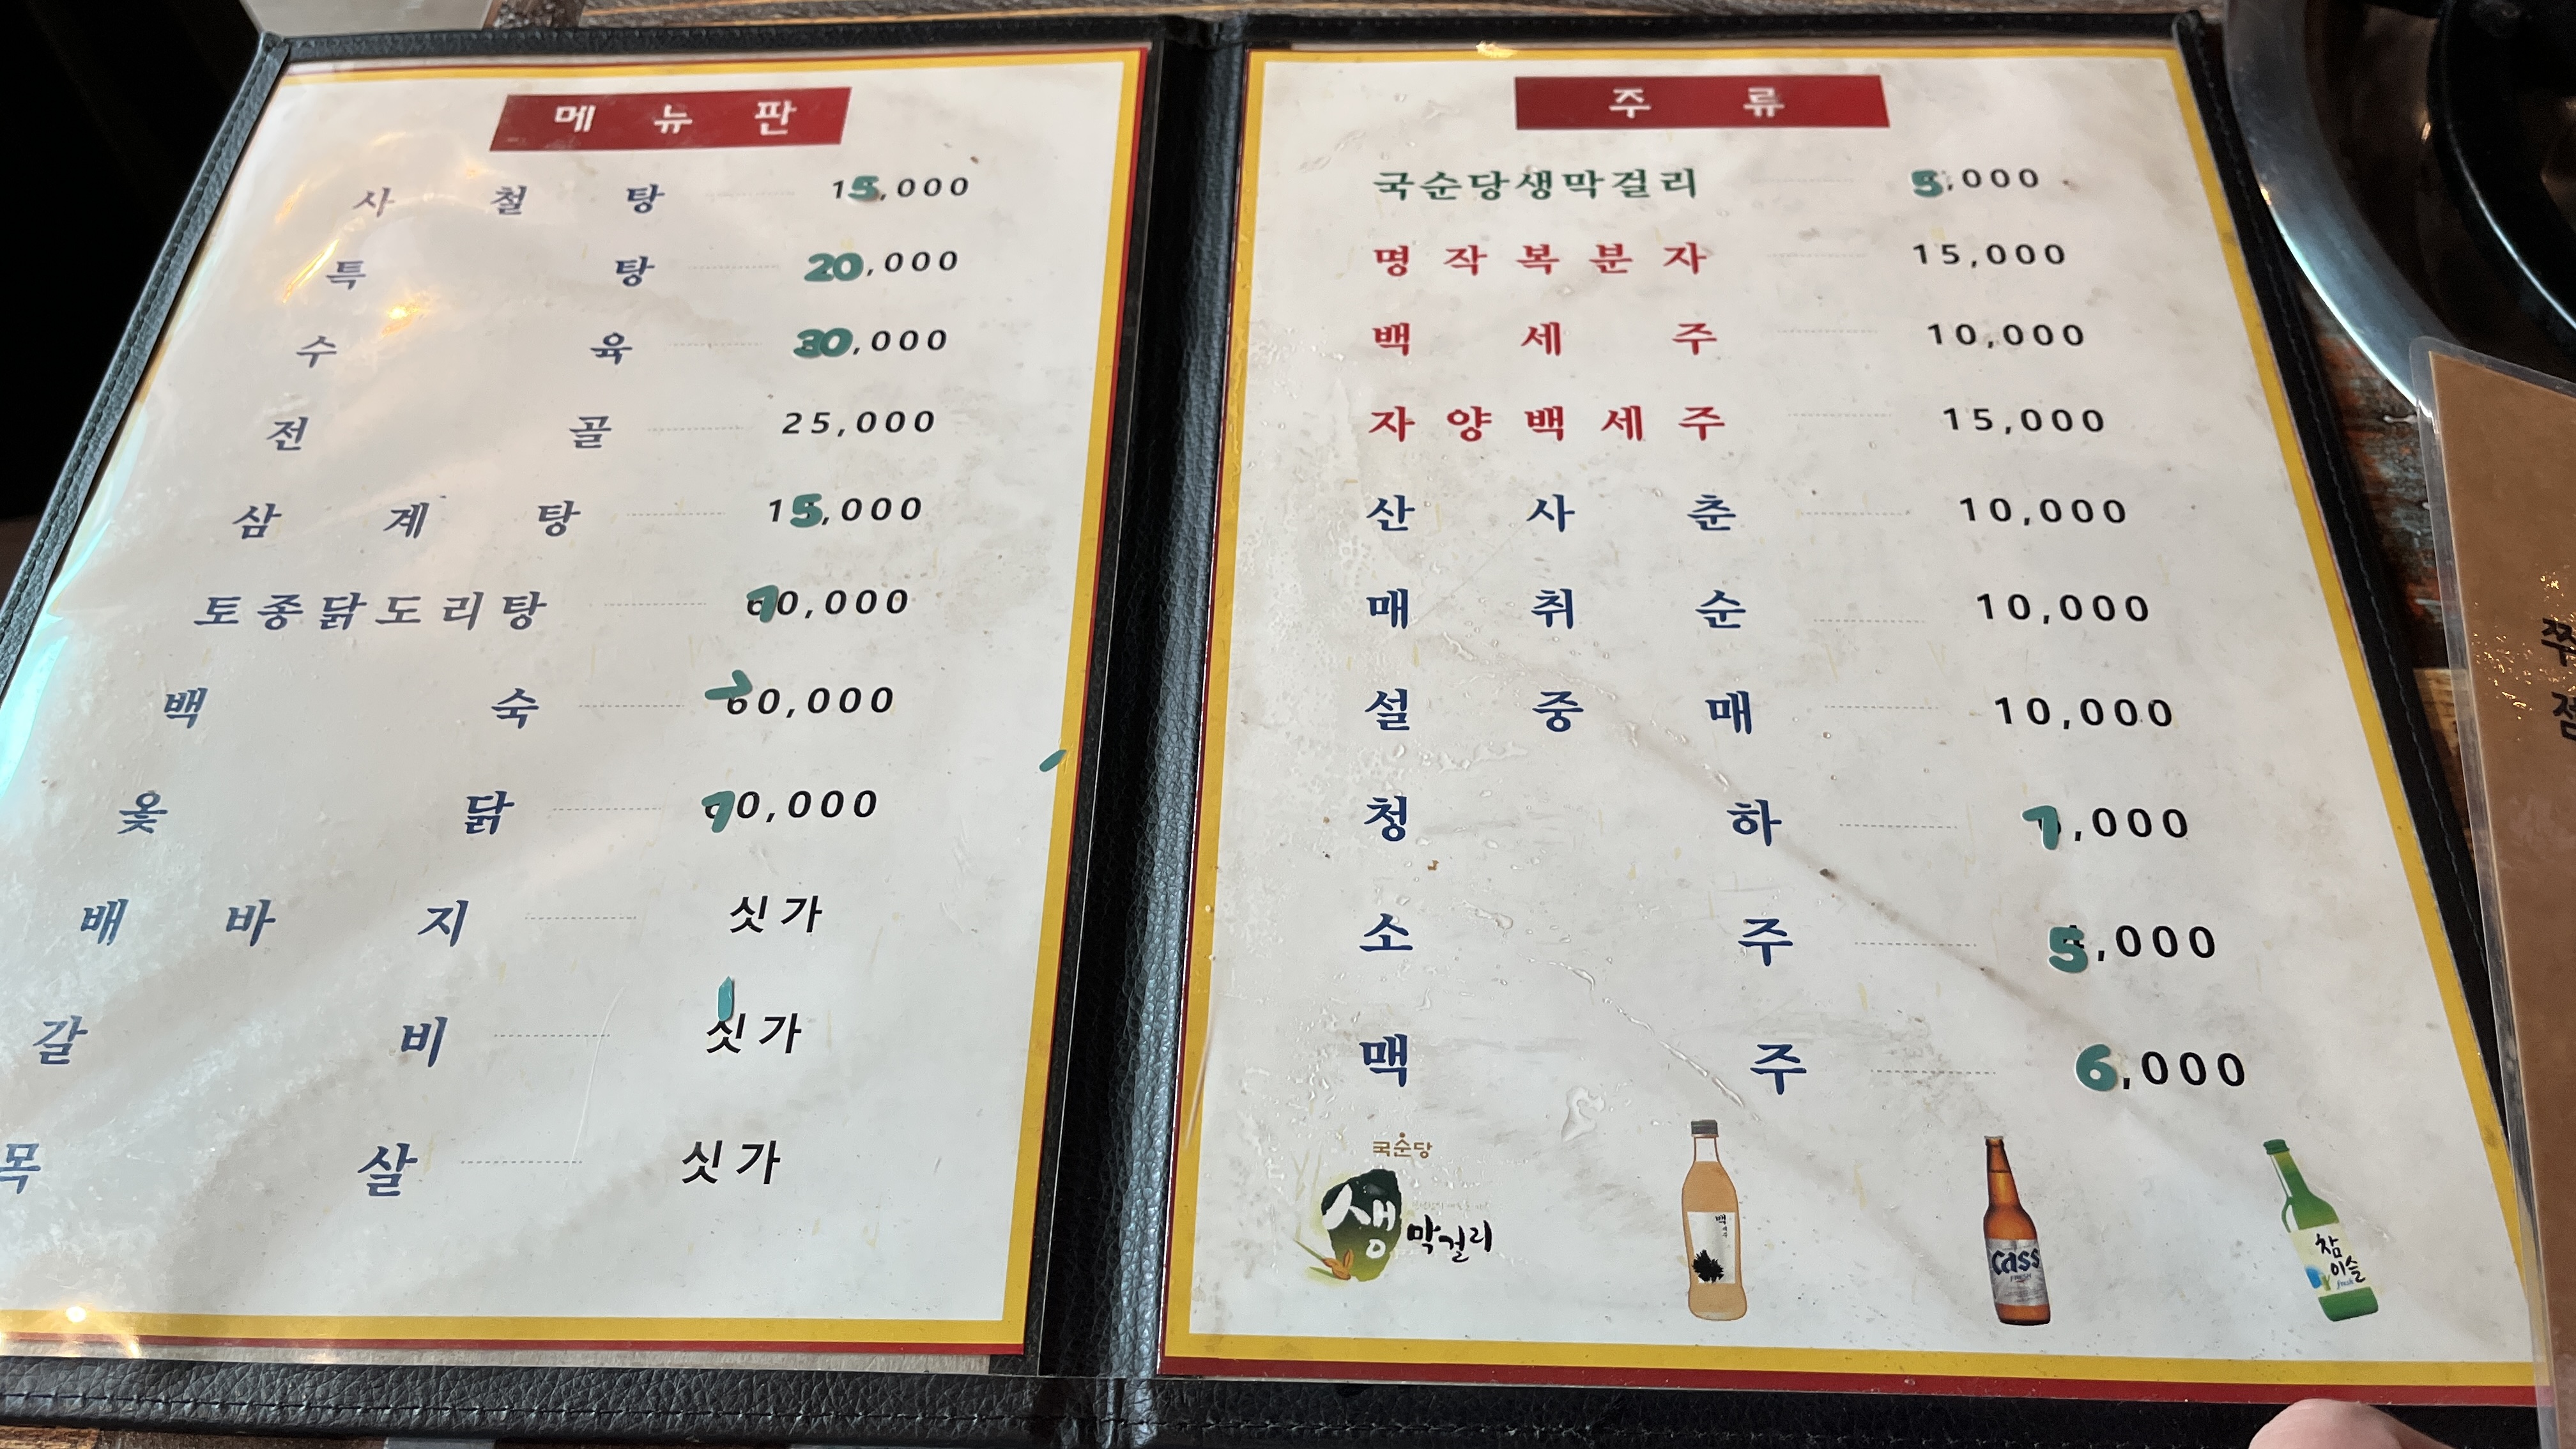 메뉴판
사철탕 15,000
특탕 20,000
수육 30,000
전골 25,000
삼계탕 15,000
토종닭도리탕 70,000
백숙 70,000
옻닭 70,000
배바지 싯가
갈비 싯가
목살 싯가
주류
국순당생막걸리 5,000
명작복분자 15,000
백세주 10,000
자양백세주 15,000
산사춘 10,000
매취순 10,000
설중매 10,000
청하 7,000
소주 5,000
맥주 6,000
국순당
생막걸리
백세주
Cass
FRESH
참이슬
fresh